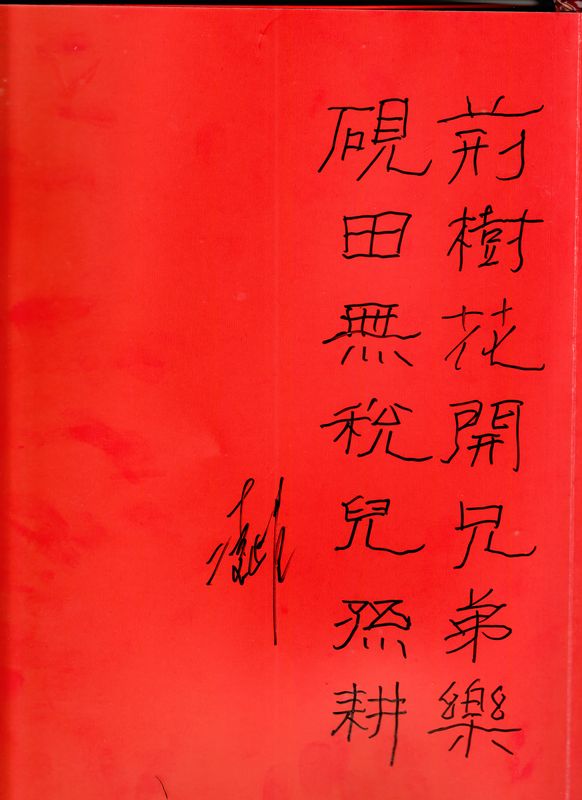 荊樹花開兄弟樂
硯田無税兒孫耕